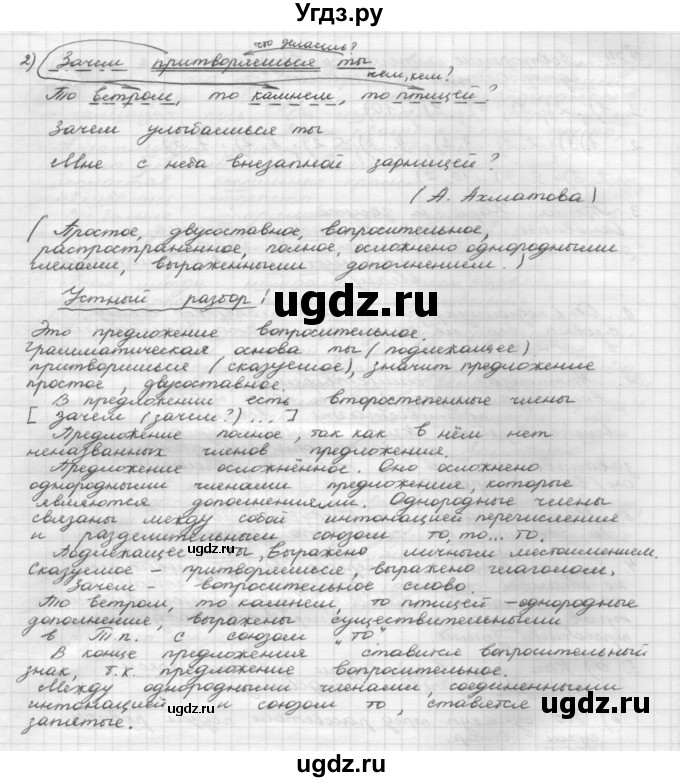 Угдз.ру
что делаешь?
2) Зачем притворяешься ты
кем, кем?
То ветром, то камнем, то птицей?
Зачем улыбаешься ты
Мне с неба внезапной зарницей?
(А. Ахматова)
(Простое, двусоставное, вопросительное,
распространённое, полное, осложнено однородными
членами, выраженными дополнением.)
Устный разбор!
ugdz.ru
Это предложение вопросительное.
Грамматическая основа ты (подлежащее)
притворишься (сказуемое), значит предложение
простое, двусоставное.
В предложении есть второстепенные члены
[ зачем (зачем?) ... ]
ugdz.ru
Предложение полное, так как в нём нет
неназванных членов предложения.
Предложение осложнённое. Оно осложнено
однородными членами предложения, которые
являются дополнениями. Однородные члены
связаны между собой интонацией перечисления
и разделительным союзом то, то... то.
ugdz.ru
Подлежащее - ты, выражено личным местоимением.
Сказуемое - притворяешься, выражено глаголом.
Зачем - вопросительное слово.
То ветром, то камнем, то птицей - однородные
дополнение, выражены существительными
в Т.п. с союзом "то"
В конце предложения ставится вопросительный
знак, т.к. предложение вопросительное.
Между однородными членами, соединенными
интонацией и союзом то, ставятся
запятые.
ugdz.ru
ugdz.ru